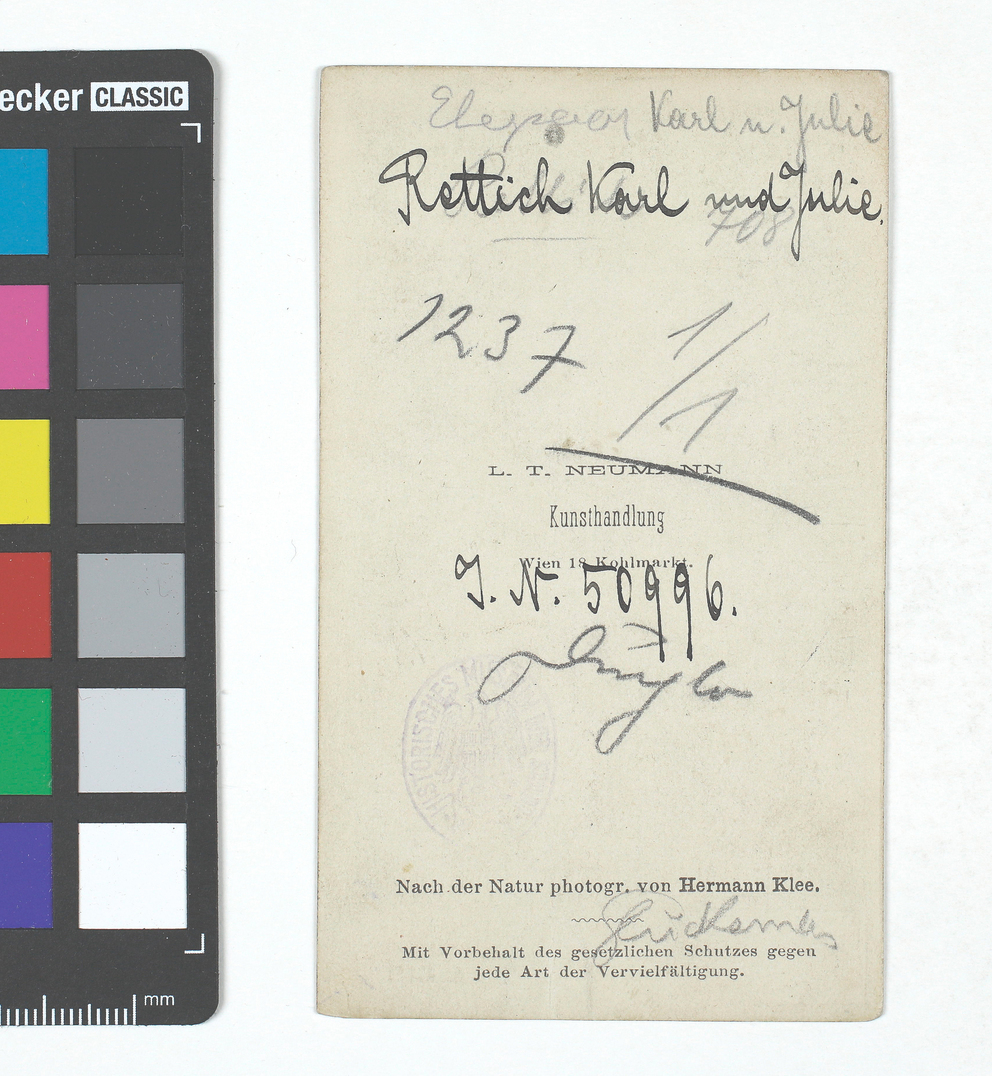 ecker CLASSIC
Ehepaar Karl u. Julie
Rettich Karl und Julie.
708
1237
1/1
L. T. NEUMANN
Kunsthandlung
Wien 18 Kohlmarkt.
I. N. 50996.
HISTORISCHES
Nach der Natur photogr. von Hermann Klee.
Mit Vorbehalt des gesetzlichen Schutzes gegen
jede Art der Vervielfältigung.
mm